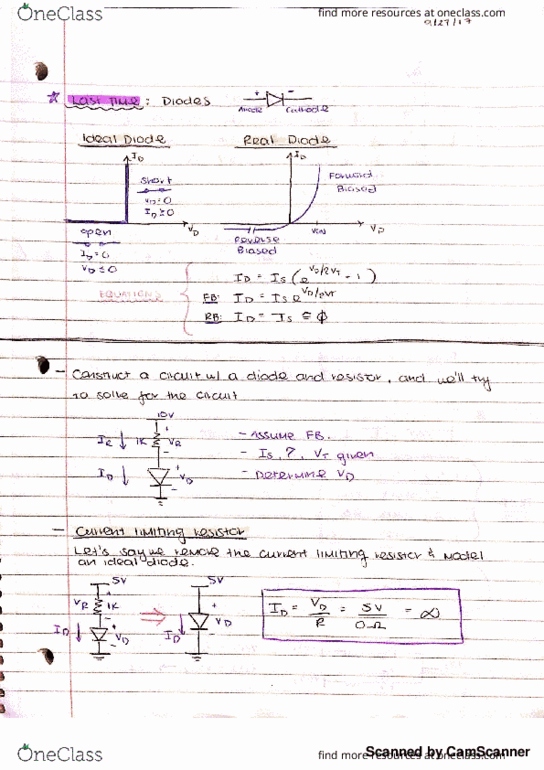 OneClass
find more resources at oneclass.com
9/27/17
Last Time: Diodes
+ -
Anode Cathode
Ideal Diode
Real Diode
I_D
I_D
short
V_D = 0
I_D ≥ 0
Forward
Biased
V_D
V_D
open
I_D = 0
V_D ≤ 0
Reverse
Biased
I_D = I_S (e^{V_D/ηV_T} - 1)
EQUATIONS
FB: I_D = I_S e^{V_D/ηV_T}
RB: I_D = -I_S ≅ ϕ
- Construct a circuit w/ a diode and resistor, and we'll try
to solve for the circuit
10V
I_R ↓ 1K + V_R -
I_D ↓ + V_D -
- Assume FB.
- I_S, η, V_T given
- Determine V_D
- Current limiting resistor
Let's say we remove the current limiting resistor & model
an ideal diode.
5V
5V
V_R 1K
I_D ↓ + V_D -
I_D ↓ + V_D -
I_D = V_D/R = 5V/0Ω = ∞
OneClass
find more resources at oneclass.com
Scanned by CamScanner